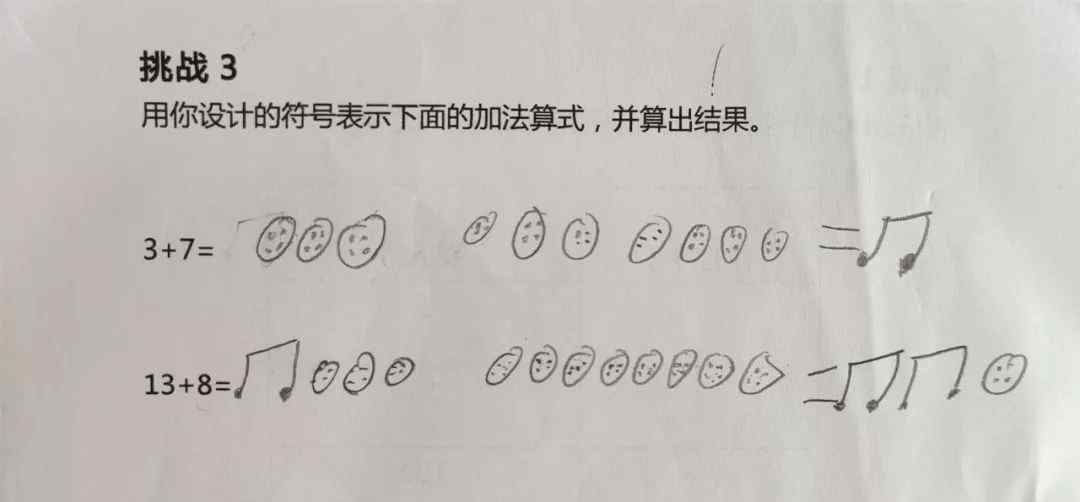 挑战 3
用你设计的符号表示下面的加法算式，并算出结果。
3+7= =
13+8= =